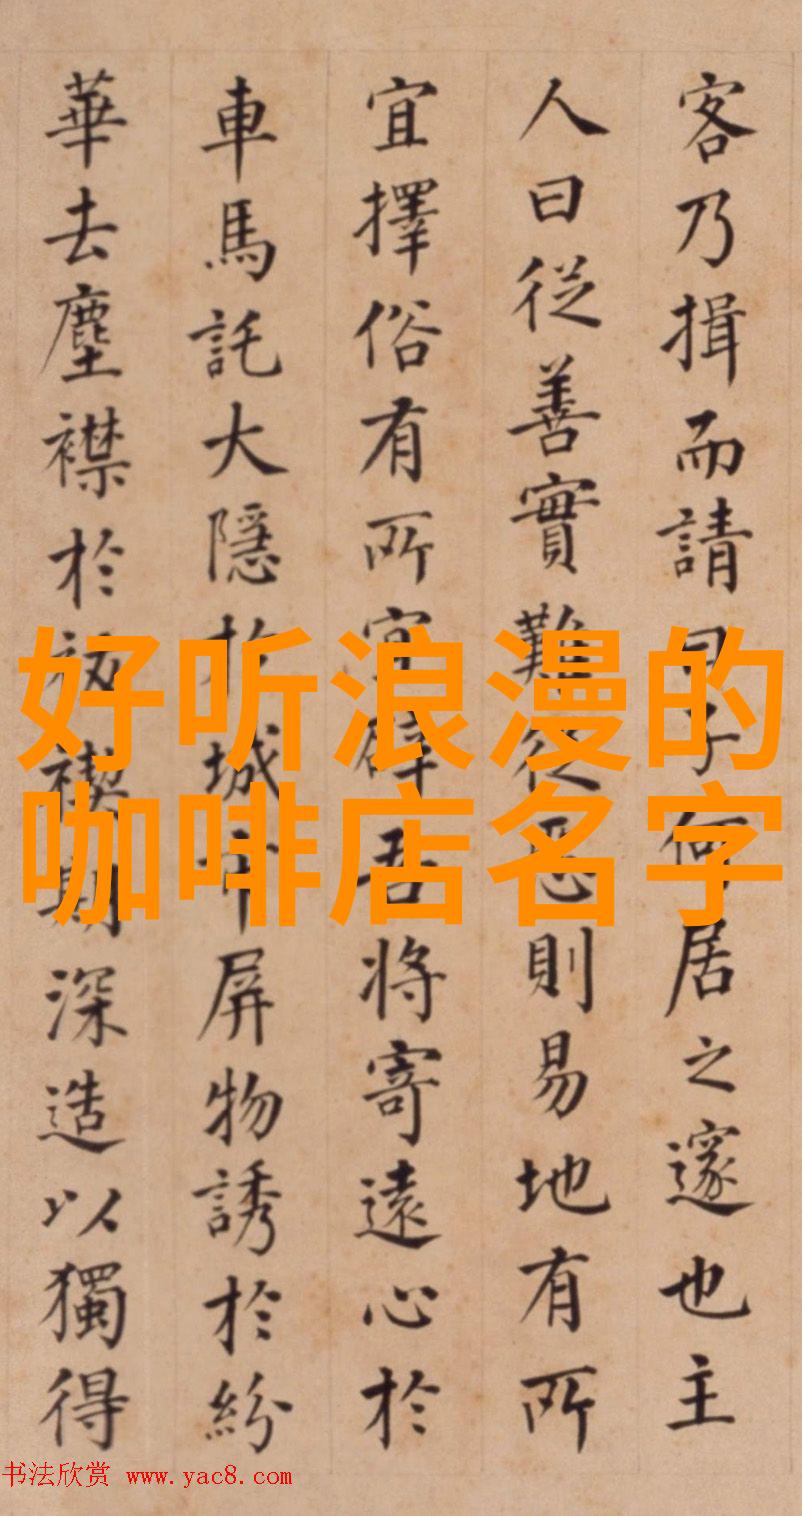 客乃揖而請曰子何居之邃也主
人曰從善實難從惡則易地有所
宜擇俗有所宜辟吾將寄遠心於
車馬託大隱於城市屏物誘於紛
華去塵襟於祓禊期深造以獨得
好听浪漫的
咖啡店名字
书法欣赏 www.yac8.com